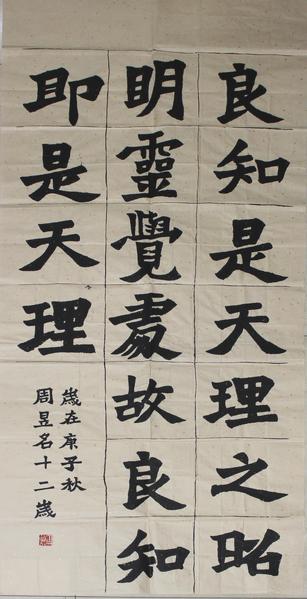 良知是天理之昭
明靈覺處故良知
即是天理
歲在庚子秋
周昱名十二歲